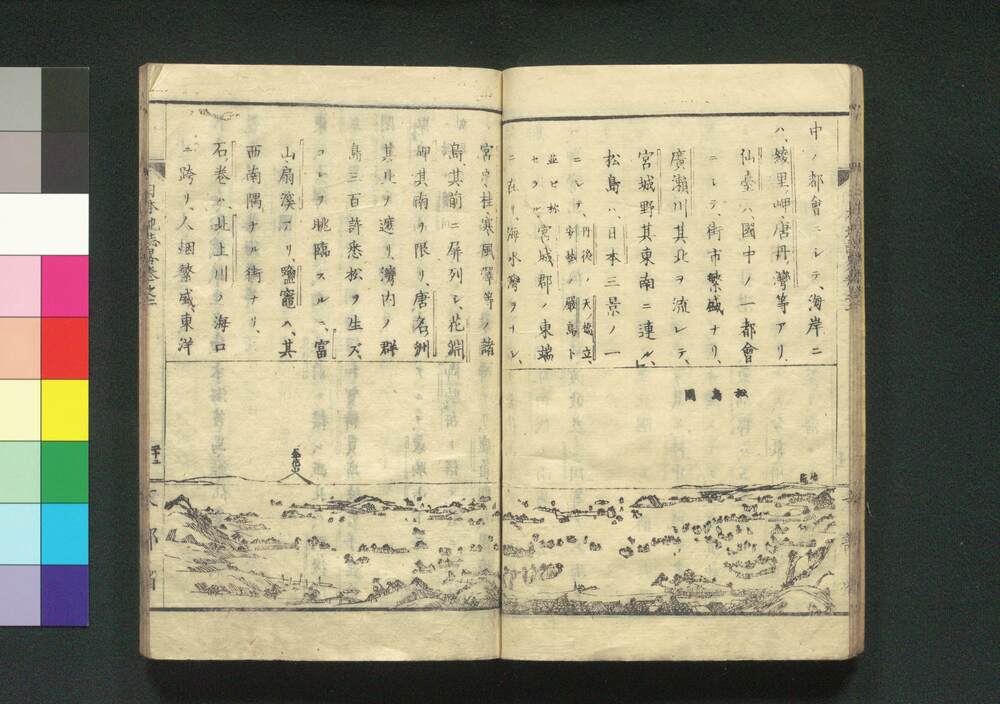 中ノ都會ニシテ、海岸ニ
ハ、綾里岬、唐丹灣等アリ、
仙臺ハ、國中ノ一都會
ニシテ、街市繁盛ナリ、
廣瀬川其北ヲ流レテ、
宮城野其東南ニ連ル、
松島ハ、日本三景ノ一
ニシテ、丹後ノ天ノ橋立、
安藝ノ嚴島ト
並ヒ称
セラル
宮城郡ノ東端
ニ在リ、海水灣ヲナシ、
松島圖
桂、寒風澤等ノ諸
島、其前ニ屏列シ、花淵
岬其南ヲ限リ、唐名洲
其北ヲ遮リ、灣内ノ群
島三百許悉松ヲ生ズ、
コレヲ眺臨スルニ、富
山扇溪アリ、鹽竈ハ、其
西南隅ナル街ナリ、
石ノ巻ハ、北上川ノ海口
ニ跨リ、人烟繁盛、東洋
金花山
日本地誌略巻之二
文部省